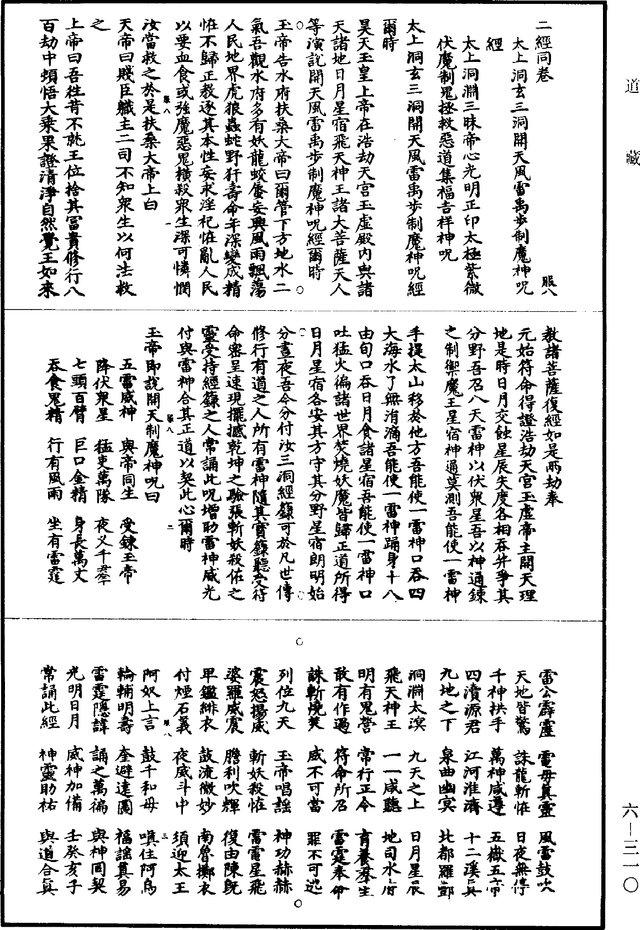 道藏
二經同卷 服八
太上洞玄三洞開天風雷禹步制魔神呪
經
太上洞淵三昧帝心光明正印太極紫微
伏魔制鬼拯救惡道集福吉祥神呪
太上洞玄三洞開天風雷禹步制魔神呪經
爾時
昊天玉皇上帝在浩劫天宮玉虛殿内與諸
天諸地日月星宿飛天神王諸大菩薩天人
等演說開天風雷禹步制魔神呪經爾時
玉帝告水府扶桑大帝曰爾管下方地水二
氣吾觀水府多有妖龍蛟蜃妄興風雨飄蕩
人民地界虎狼蟲蛇野犴壽命年深變成精
恠不歸正教逐其本性妄求淫祀恠亂人民
以要血食或強魔惡鬼橫殺衆生深可憐憫
汝當救之於是扶桑大帝上白
天帝曰賤臣職主二司不知衆生以何法救
之
上帝曰吾往昔不就王位捨其冨貴修行八
百劫中頓悟大乘果證清淨自然覺王如來
教諸菩薩復經如是兩劫奉
元始符命得證浩劫天宮玉虛帝主開天理
地是時日月交蝕星辰失度各相吞并爭其
分野吾召八天雷神以伏衆星吾以神通鍊
之制禦魔王星宿神通莫測吾能使一雷神
手提太山移於他方吾能使一雷神口吞四
大海水了無涓滴吾能使一雷神踊身十八
由旬口吞日月食諸星宿吾能使一雷神口
吐猛火徧諸世界焚燒妖魔皆歸正道所得
日月星宿各安其方守其分野星宿朗明始
分晝夜吾今分付汝三洞經籙可於凡世傳
修行有道之人所有雷神隨其寶籙聽受符
命密呈速現擺撼乾坤之驗張斬妖殺佑之
靈受持經籙之人常誦此呪增助雷神威光
付與雷神合其正道以契此心爾時
玉帝即說開天制魔神呪曰
五雷威神 與帝同生 受鍊玉帝
降伏衆星 猛吏萬隊 夜乂千羣
七頭百臂 巨口金精 身長萬丈
吞食鬼精 行有風雨 坐有雷霆
雷公霹靂 電母真靈 風雷鼓吹
天地皆驚 誅龍斬恠 日夜無停
千神拱手 萬神咸遵 五嶽五帝
四瀆源君 江河淮濟 十二溪真
九地之下 泉曲幽冥 北都羅酆
洞淵太溟 九天之上 日月星辰
飛天神王 一一咸聽 地司水府
明有鬼營 常行正令 育養羣生
敢有作過 符命所召 雷霆奉命
誅斬燒焚 威不可當 罪不可逃
列位九天 玉帝唱謡 神功赫赫
震怒揚威 斬妖殺恠 雷電星飛
婆羅威震 膽利吹輝 復由陳旣
早鑑緋衣 鼓流微妙 南魯擲衣
付煙石義 夜威斗中 須迎太王
阿奴上言 鼓千和母 嗔住阿烏
輪輔明壽 奎避達圖 福謡真易
雷霆隱諱 誦之萬徧 與神同契
光明日月 威神加備 壬癸亥子
常誦此經 神靈助祐 與道合真
六—三一〇